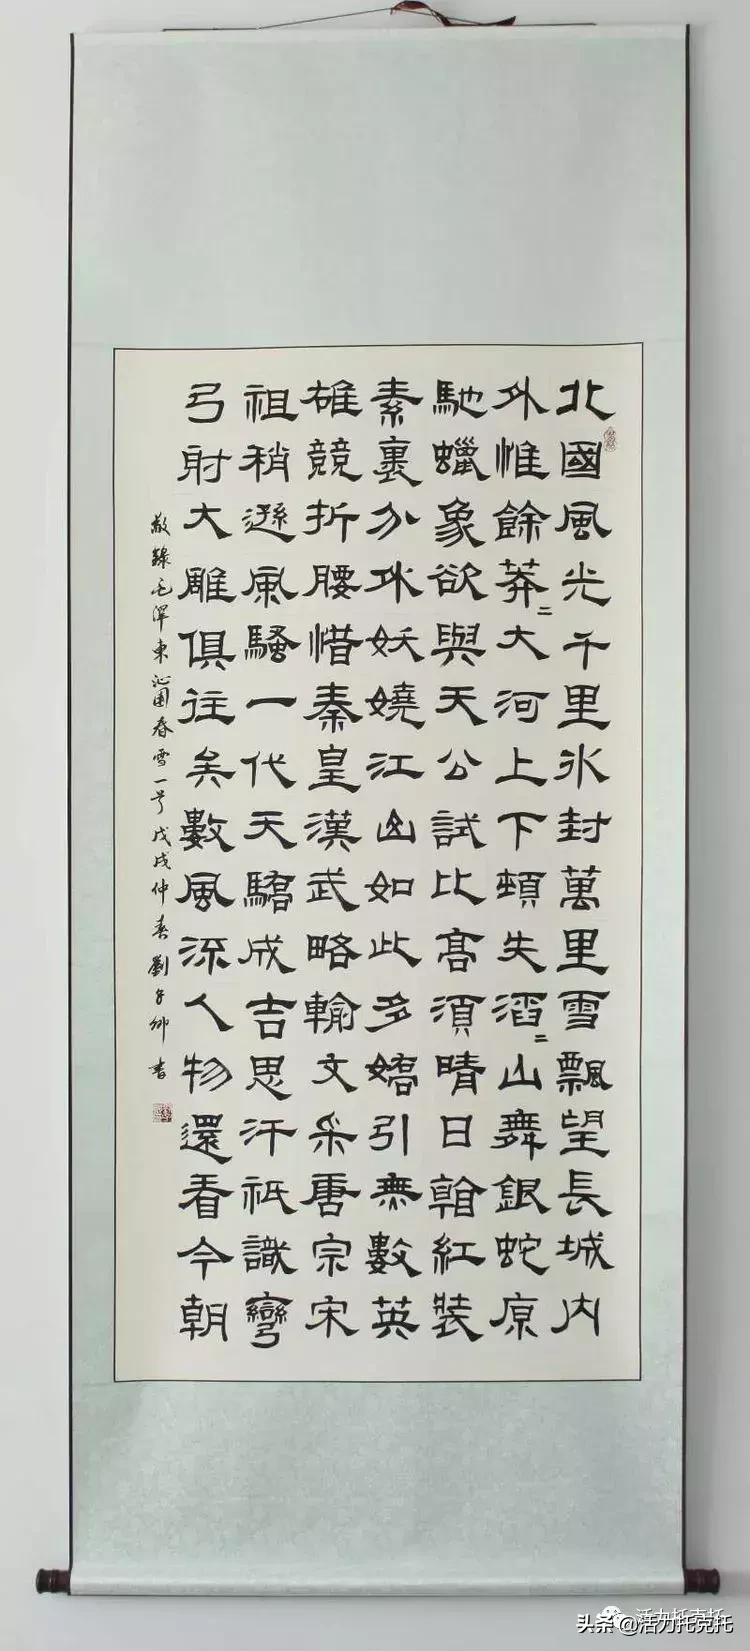 北國風光千里氷封萬里雪飄望長城内
外惟餘莽二大河上下頓失滔二山舞銀蛇原
馳蠟象欲與天公試比髙須晴日紅裝
素裹分外妖嬈江山如此多嬌引無數英
雄競折腰惜秦皇漢武略輸文采唐宗宋
祖稍遜風騷一代天驕成吉思汗祗識彎
弓射大雕俱往矣數風流人物還看今朝
敬録毛澤東沁園春雪一首戊戌仲春劉子卿書
活力托克托
头条@活力托克托